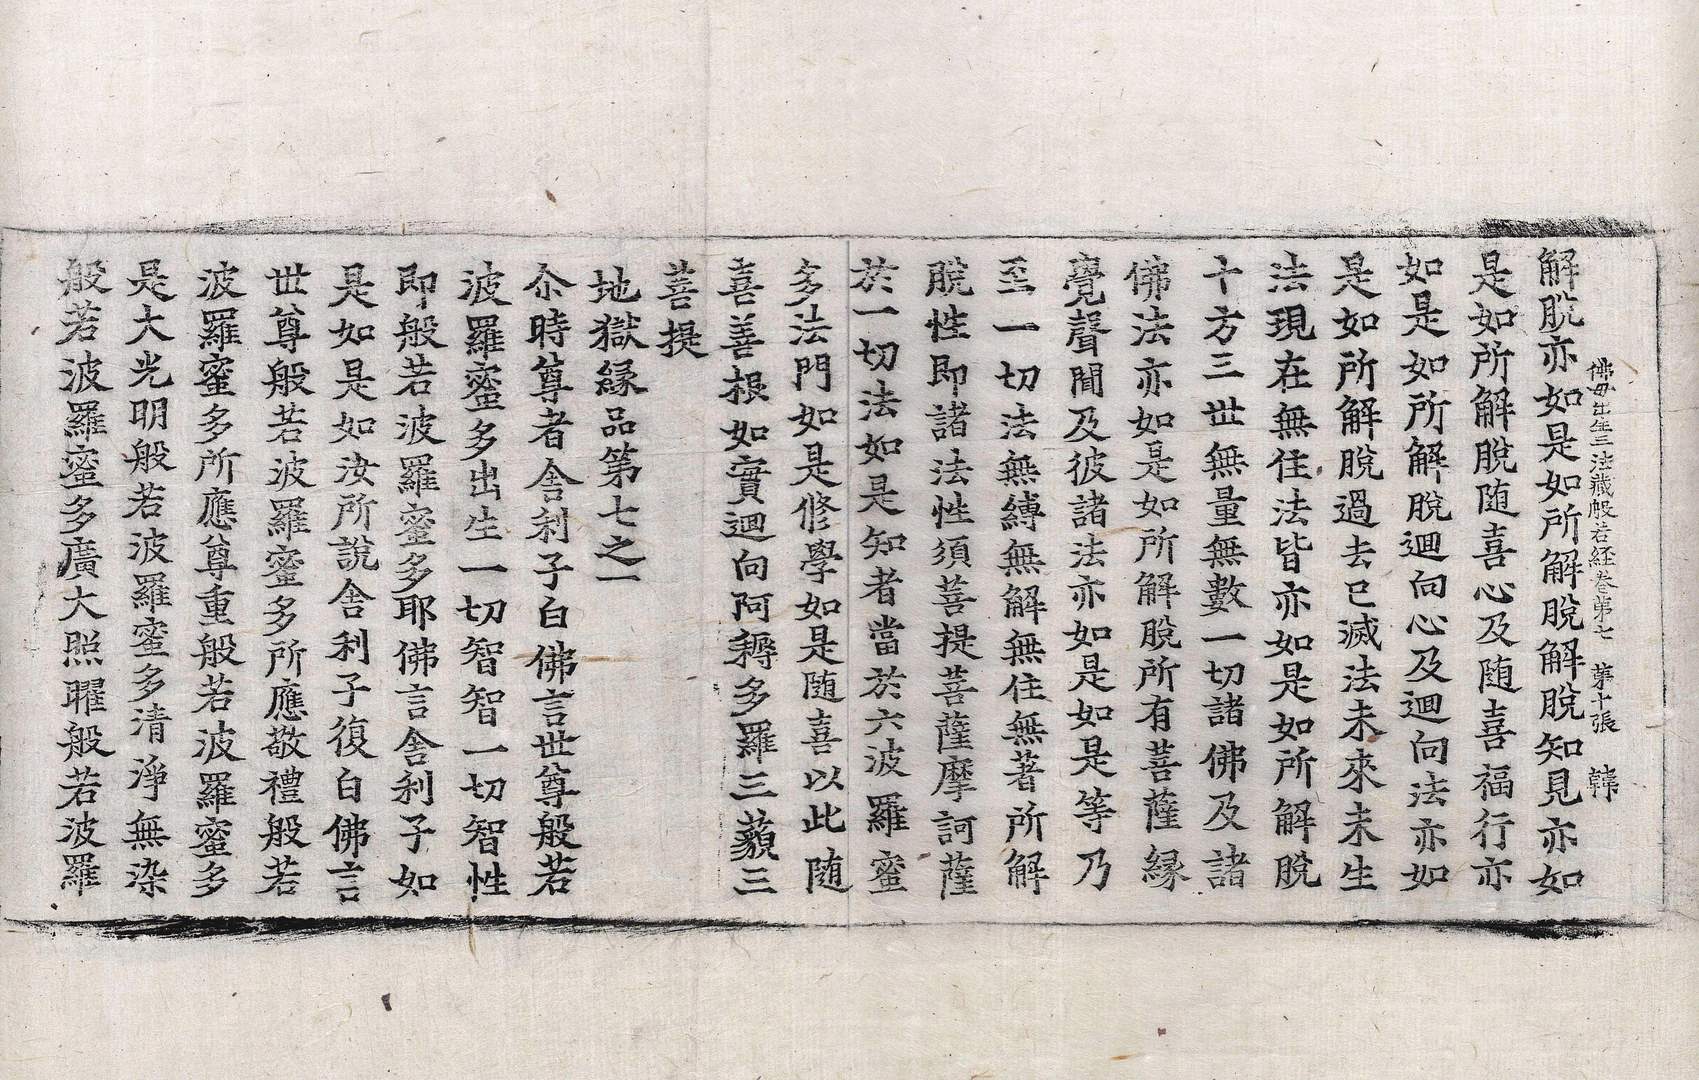 佛母出生三法藏般若経卷第七 第十張 韓
解脫亦如是如所解脫解脫知見亦如
是如所解脫随喜心及随喜福行亦
如是如所解脫迴向心及迴向法亦如
是如所解脫過去已滅法未來未生
法現在無住法皆亦如是如所解脫
十方三世無量無數一切諸佛及諸
佛法亦如是如所解脫所有菩薩縁
覺聲聞及彼諸法亦如是如是等乃
至一切法無縛無解無住無著所解
脫性即諸法性須菩提菩薩摩訶薩
於一切法如是知者當於六波羅蜜
多法門如是修學如是随喜以此随
喜善根如實迴向阿耨多羅三藐三
菩提
地獄縁品第七之一
尒時尊者舎利子白佛言世尊般若
波羅蜜多出生一切智智一切智性
即般若波羅蜜多耶佛言舎利子如
是如是如汝所說舎利子復白佛言
世尊般若波羅蜜多所應敬禮般若
波羅蜜多所應尊重般若波羅蜜多
是大光明般若波羅蜜多清淨無染
般若波羅蜜多廣大照曜般若波羅